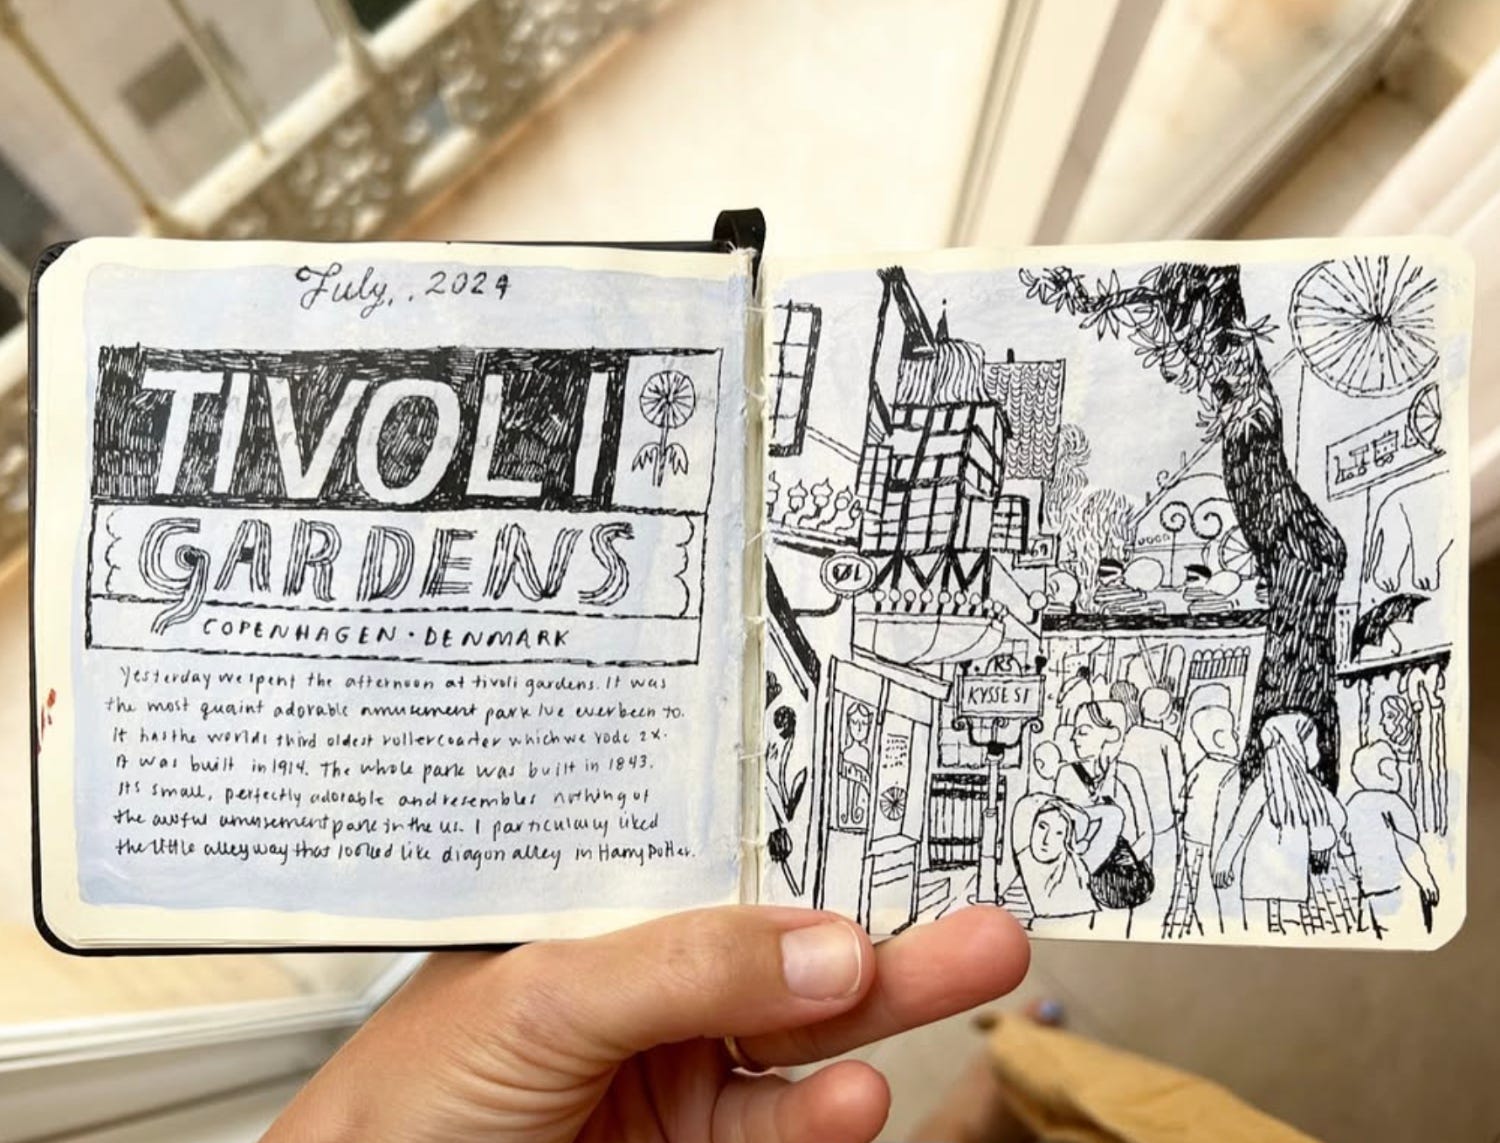 July, . 2024
TIVOLI
GARDENS
COPENHAGEN · DENMARK
Yesterday we spent the afternoon at tivoli gardens. It was
the most quaint adorable amusement park Ive ever been to.
It has the worlds third oldest rollercoaster which we rode 2x.
It was built in 1914. The whole park was built in 1843.
Its small, perfectly adorable and resembles nothing of
the awful amusement park in the us. I particularly liked
the little alleyway that looked like diagon alley in Harry Potter.
ØL
KYSSE ST